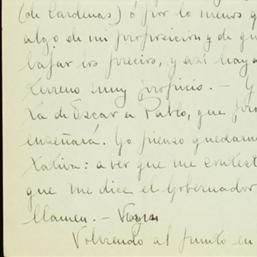 (de Cárdenas) ó por lo menos q
algo de mi proposición y de qu
bajar los precios, y así haya
terreno muy propicio. — Y
rá de Escar a Pablo, que
enseñará. Yo pienso quedarme
Xativa: a ver que me contest
que me dice el Gobernador
llamen. —
Volviendo al punto en